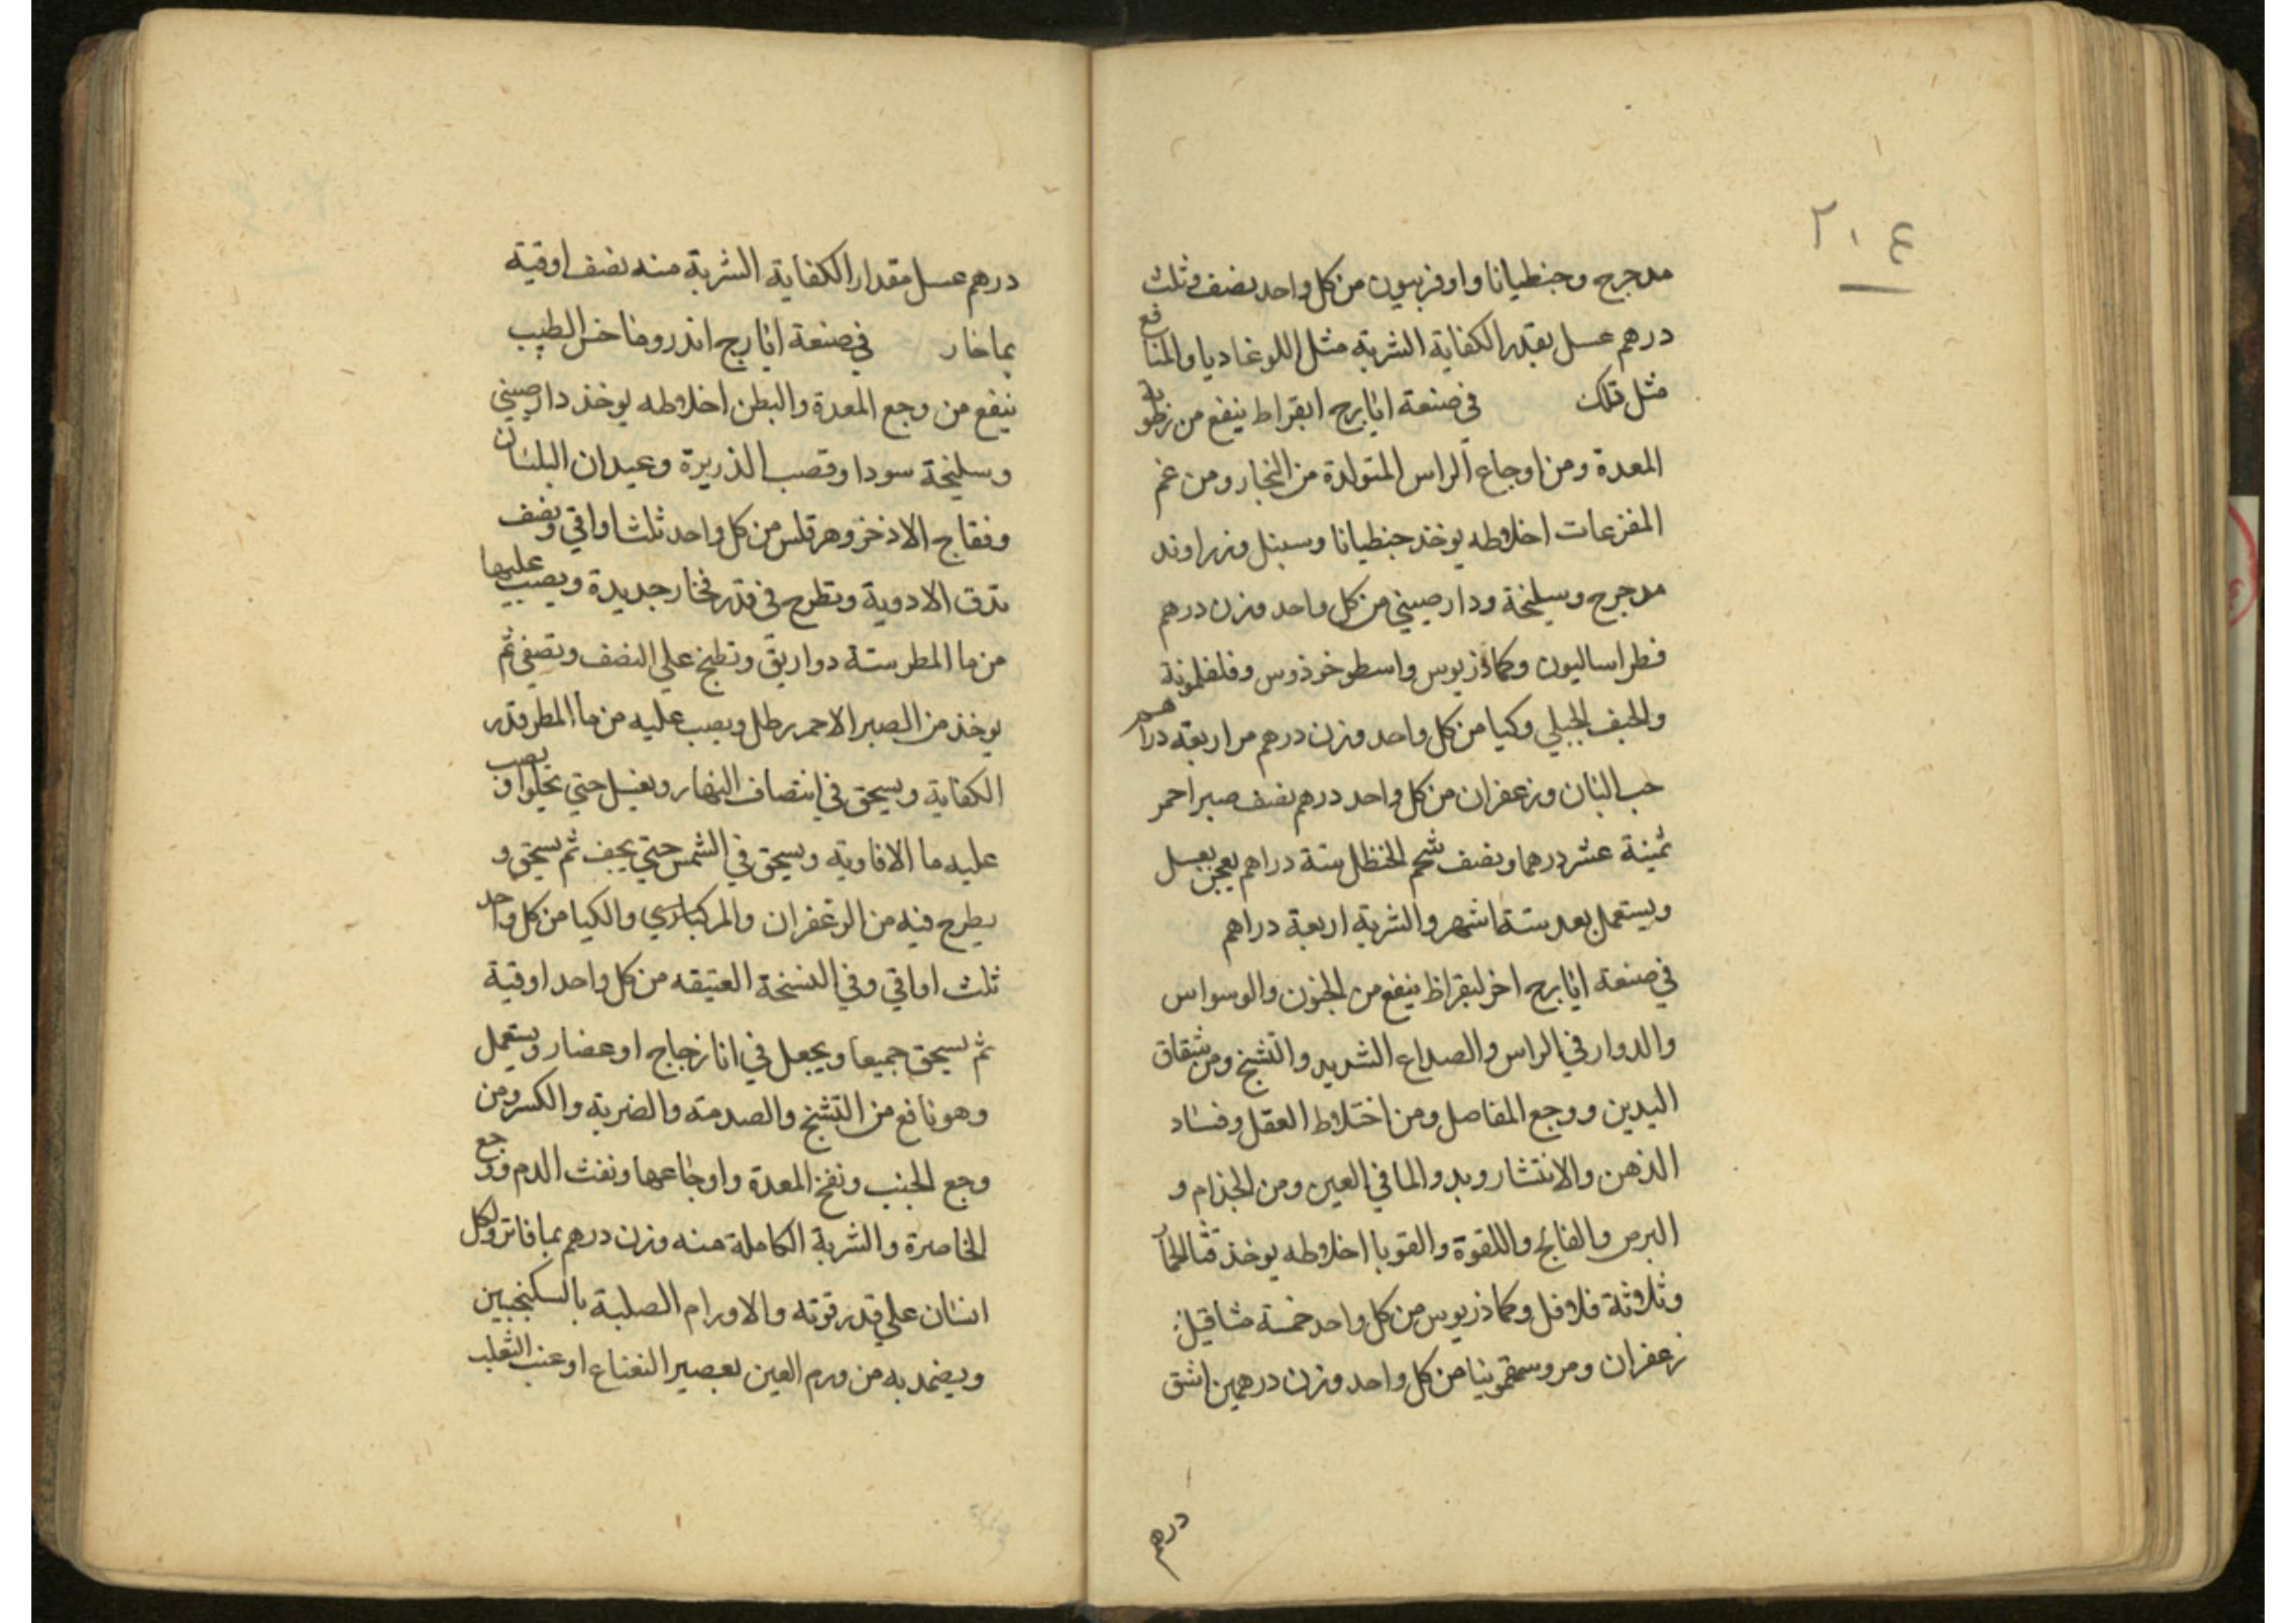 ٢٠٤
مدحرج وجنطيانا واوفربيون من كل واحد نصف وثلث
درهم عسل بقدر الكفاية الشربة مثل اللوغاديا والمنافع
مثل تلك في صنعة ايارج ابقراط ينفع من رطوبة
المعدة ومن اوجاع الراس المتولدة من البخار ومن غم
المفزعات اخلاطه يوخذ جنطيانا وسنبل وزراوند
مدحرج وسليخة ودارصيني من كل واحد وزن درهم
فطراساليون وكماذريوس واسطوخوذوس وفلفلمونة
والحبق الجبلي وكيا من كل واحد وزن درهم مر اربعة دراهم
حب البان وزعفران من كل واحد درهم نصف صبر احمر
ثمنية عشر درهما ونصف شحم الحنظل ستة دراهم يعجن بعسل
ويستعمل بعد ستة اشهر والشربة اربعة دراهم
في صنعة ايارج اخر لبقراط ينفع من الجنون والوسواس
والدوار في الراس والصداع الشديد والتشنج ومن شقاق
اليدين ووجع المفاصل ومن اختلاط العقل وفساد
الذهن والانتشار وبدو الما في العين ومن الجذام و
البرص والفالج واللقوة والقوبا اخلاطه يوخذ قثا الحمار
وثلاثة فلافل وكماذريوس من كل واحد خمسة مثاقيل
زعفران ومر وسقمونيا من كل واحد وزن درهمين اشق
درهم
درهم عسل مقدار الكفاية الشربة منه نصف اوقية
بما حار في صنعة ايارج اندروماخس الطبيب
ينفع من وجع المعدة والبطن اخلاطه يوخذ دارصيني
وسليخة سودا وقصب الذريرة وعيدان البلسان
وفقاح الاذخر وهرقلس من كل واحد ثلث اواقي ونصف
تدق الادوية وتطرح في قدر فخار جديدة ويصب عليها
من ما المطر ستة دواريق وتطبخ علي النصف وتصفي ثم
يوخذ من الصبر الاحمر رطل ويصب عليه من ما المطر قدر
الكفاية ويسحق في انتصاف النهار ويغسل حتي يحلوا ويصب
عليه ما الافاويه ويسحق في الشمس حتي يجف ثم يسحق و
يطرح فيه من الزعفران والمر والكيا من كل واحد
ثلث اواقي وفي النسخة العتيقه من كل واحد اوقية
ثم يسحق جميعا ويجعل في انا زجاج او غضار ويستعمل
وهو نافع من التشنج والصدمة والضربة والكسر ومن
وجع الجنب ونفخ المعدة واوجاعها ونفث الدم ووجع
الخاصرة والشربة الكاملة منه وزن درهم بما فاتر ولكل
انسان علي قدر قوته والاورام الصلبة بالسكنجبين
ويضمد به من ورم العين بعصير النعناع او عنب الثعلب